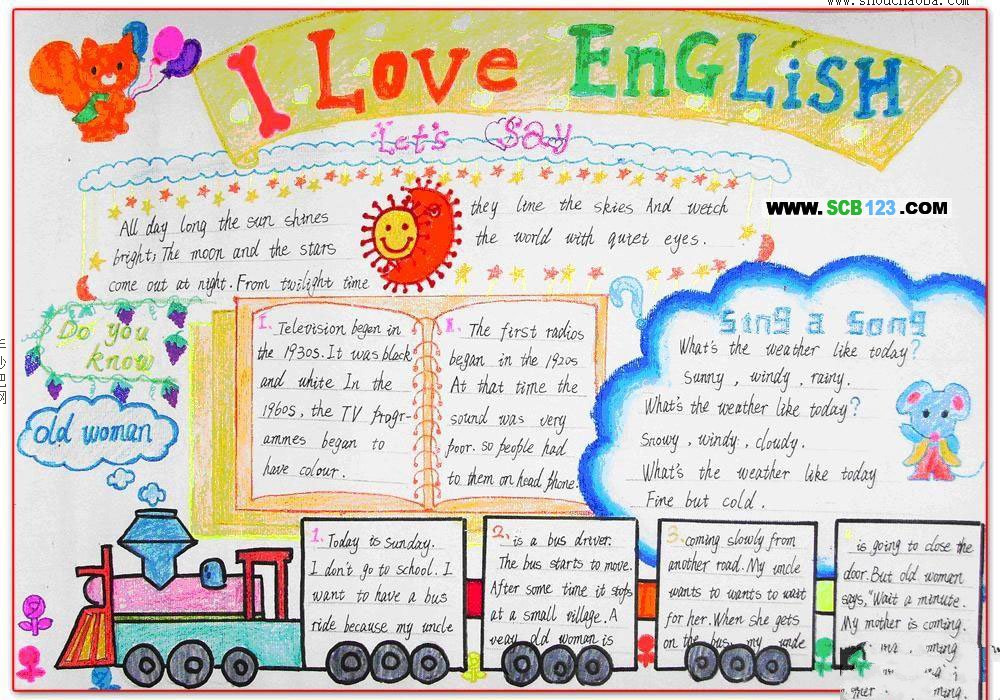 www.shouchaoba.com
I Love EnGLiSH
Let's say
All day long the sun shines
bright; The moon and the stars
come out at night. From twilight time
they line the skies And wetch
the world with quiet eyes.
WWW.SCB123.COM
Do you
know
1. Television began in
the 1930s. It was black
and white In the
1960s, the TV progr-
ammes began to
have colour.
The first radios
began in the 1920s
At that time the
sound was very
poor. so people had
to them on head phone.
Sing a Song
What's the weather like today?
Sunny, windy, rainy.
What's the weather like today?
Snowy, windy, cloudy.
What's the weather like today
Fine but cold.
old woman
1. Today is Sunday.
I don't go to school. I
want to have a bus
ride because my uncle
2. is a bus driver.
The bus starts to move.
After some time it stops
at a small village. A
veay old woman is
3. coming slowly from
another road. My uncle
wants to wants to wait
for her. When she gets
on the bus, my uncle
is going to close the
door. But old woman
says, "Wait a minute.
My mother is coming.